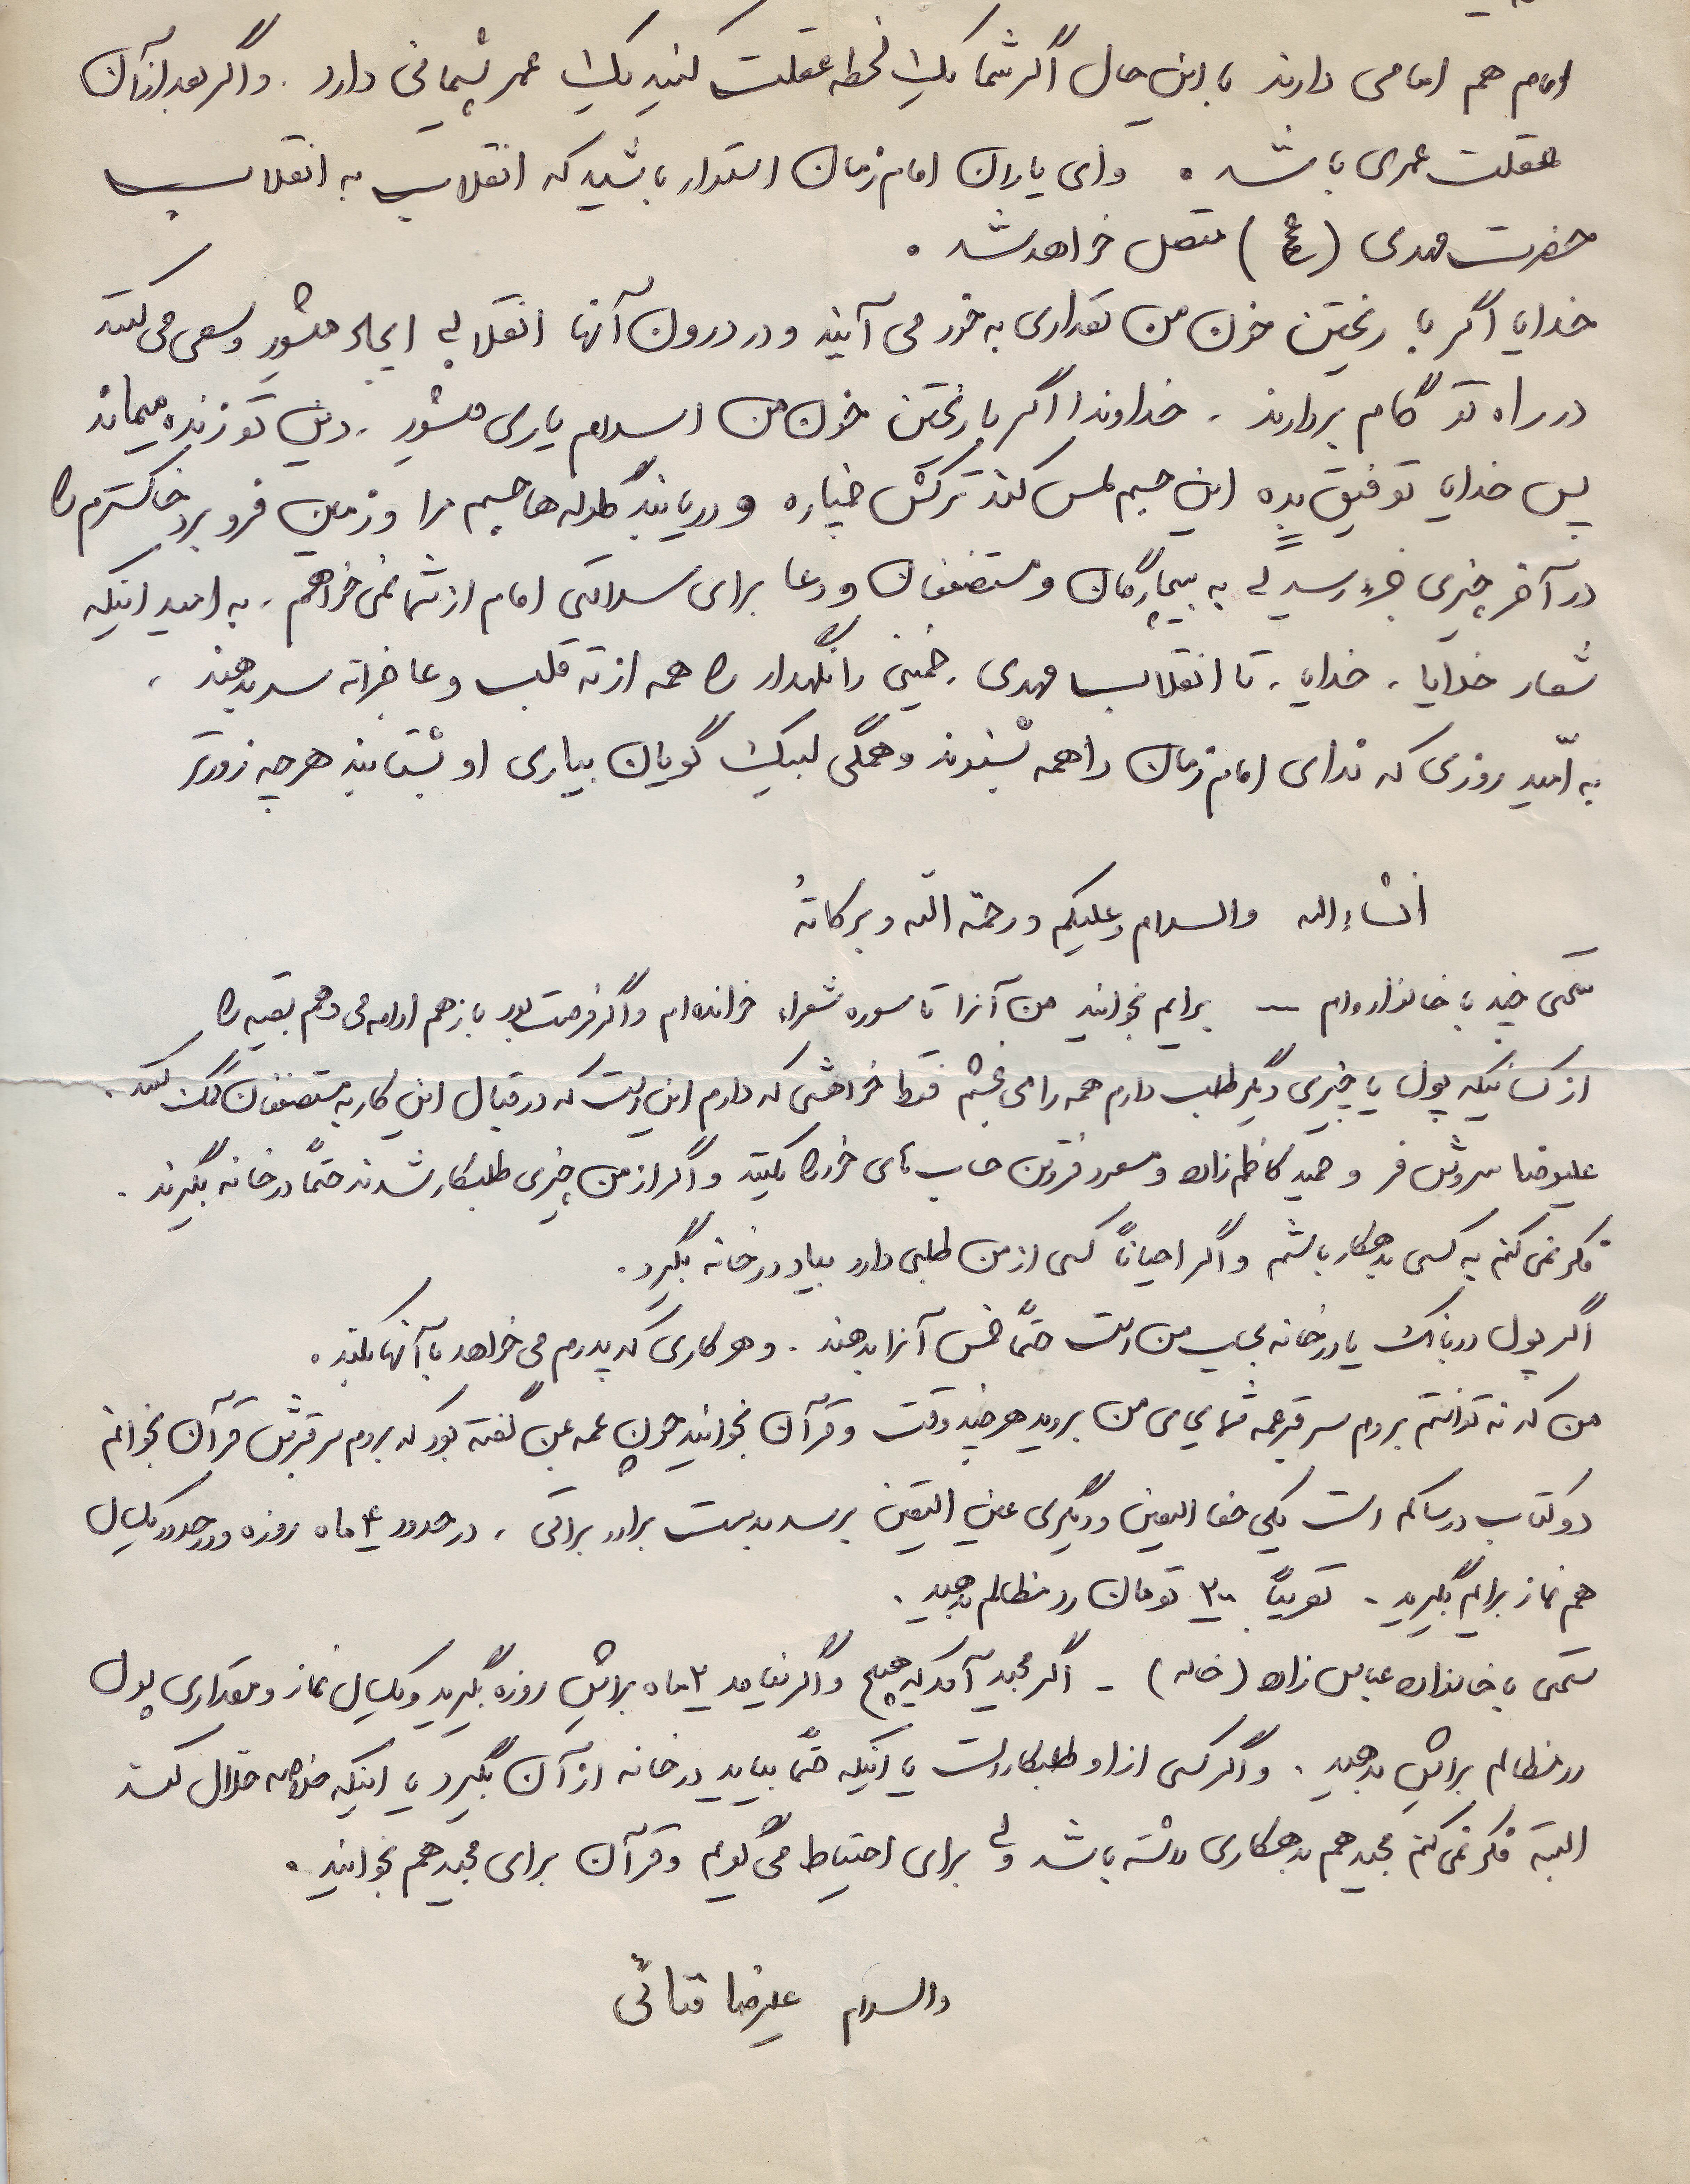 امام هم امامی دارند با این حال اگر شما یک لحظه غفلت کنید یک عمر پشیمانی دارد . و اگر بعد از آن
غفلت عمری باشد . وای یاران امام زمان استوار باشید که انقلاب به انقلاب
حضرت مهدی (عج) متصل خواهد شد .
خدایا اگر با ریختن خون من تعدادی به خود می آیند و در درون آنها انقلابی ایجاد میشود و سعی می کنند
در راه تو گام بردارند . خداوندا اگر با ریختن خون من اسلام یاری میشود . دین تو زنده میماند
پس خدایا توفیق بده این جسم لمس کند ترکش خمپاره و دریابند گلوله ها جسم مرا و زمین فرو برد خاکسترم را
در آخر چیزی جزء رسیدگی به بیچارگان و مستضعفان و دعا برای سلامتی امام از شما نمی خواهم . به امید اینکه
شعار خدایا ، خدایا ، تا انقلاب مهدی ، خمینی را نگهدار را همه از ته قلب و عاجزانه سر بدهند .
به امّید روزی که ندای امام زمان را همه بشنوند و همگی لبیک گویان بیاری او بشتابند هر چه زودتر
انشاءالله والسلام و علیکم و رحمة الله و برکاتهُ
سخنی چند با خانواده ام — برایم بخوانید من آنرا تا سوره شعراء خوانده ام و اگر فرصت بود باز هم ادامه می دهم بقیه را
از کسانیکه پول یا چیزی دیگر طلب دارم همه را می بخشم فقط خواهشی که دارم این است که در قبال این کار به مستضعفان کمک کنند .
علیرضا سروش فر و حمید کاظم زاده و مسعود قزوین حساب های خود را بکنند و اگر از من چیزی طلبکار شدند حتماً در خانه بگیرند .
فکر نمی کنم به کسی بدهکار باشم و اگر احیاناً کسی از من طلبی دارد بیاد در خانه بگیرد .
اگر پول در بانک یا در خانه بحساب من است حتماً خمس آنرا بدهند . و هر کاری که پدرم می خواهد با آنها بکند .
من که نه توانستم بروم سر قبر عمه شما بجای من بروید هر چند وقت و قرآن بخوانید چون عمه بمن گفته بود که بروم سر قبرش قرآن بخوانم
دو کتاب در ساکم است یکی حق الیقین و دیگری عین الیقین برسد بدست برادر براتی ، در حدود ۴ ماه روزه و در حدود یکسال
هم نماز برایم بگیرید . تقریباً تومان رد مظالم بدهید .
سخنی با خانواده عباس زاده (خاله) - اگر مجید آمد که هیچ و اگر نیامد ۲ ماه برایش روزه بگیرید و یکسال نماز و مقداری پول
رد مظالم برایش بدهید . و اگر کسی از او طلبکار است یا اینکه حتماً بیاید در خانه از آن بگیرد یا اینکه خلاصه حلال کند
البته فکر نمی کنم مجید هم بدهکاری داشته باشد ولی برای احتیاط می گویم و قرآن برای مجید هم بخوانید .
والسلام علیرضا قنائی